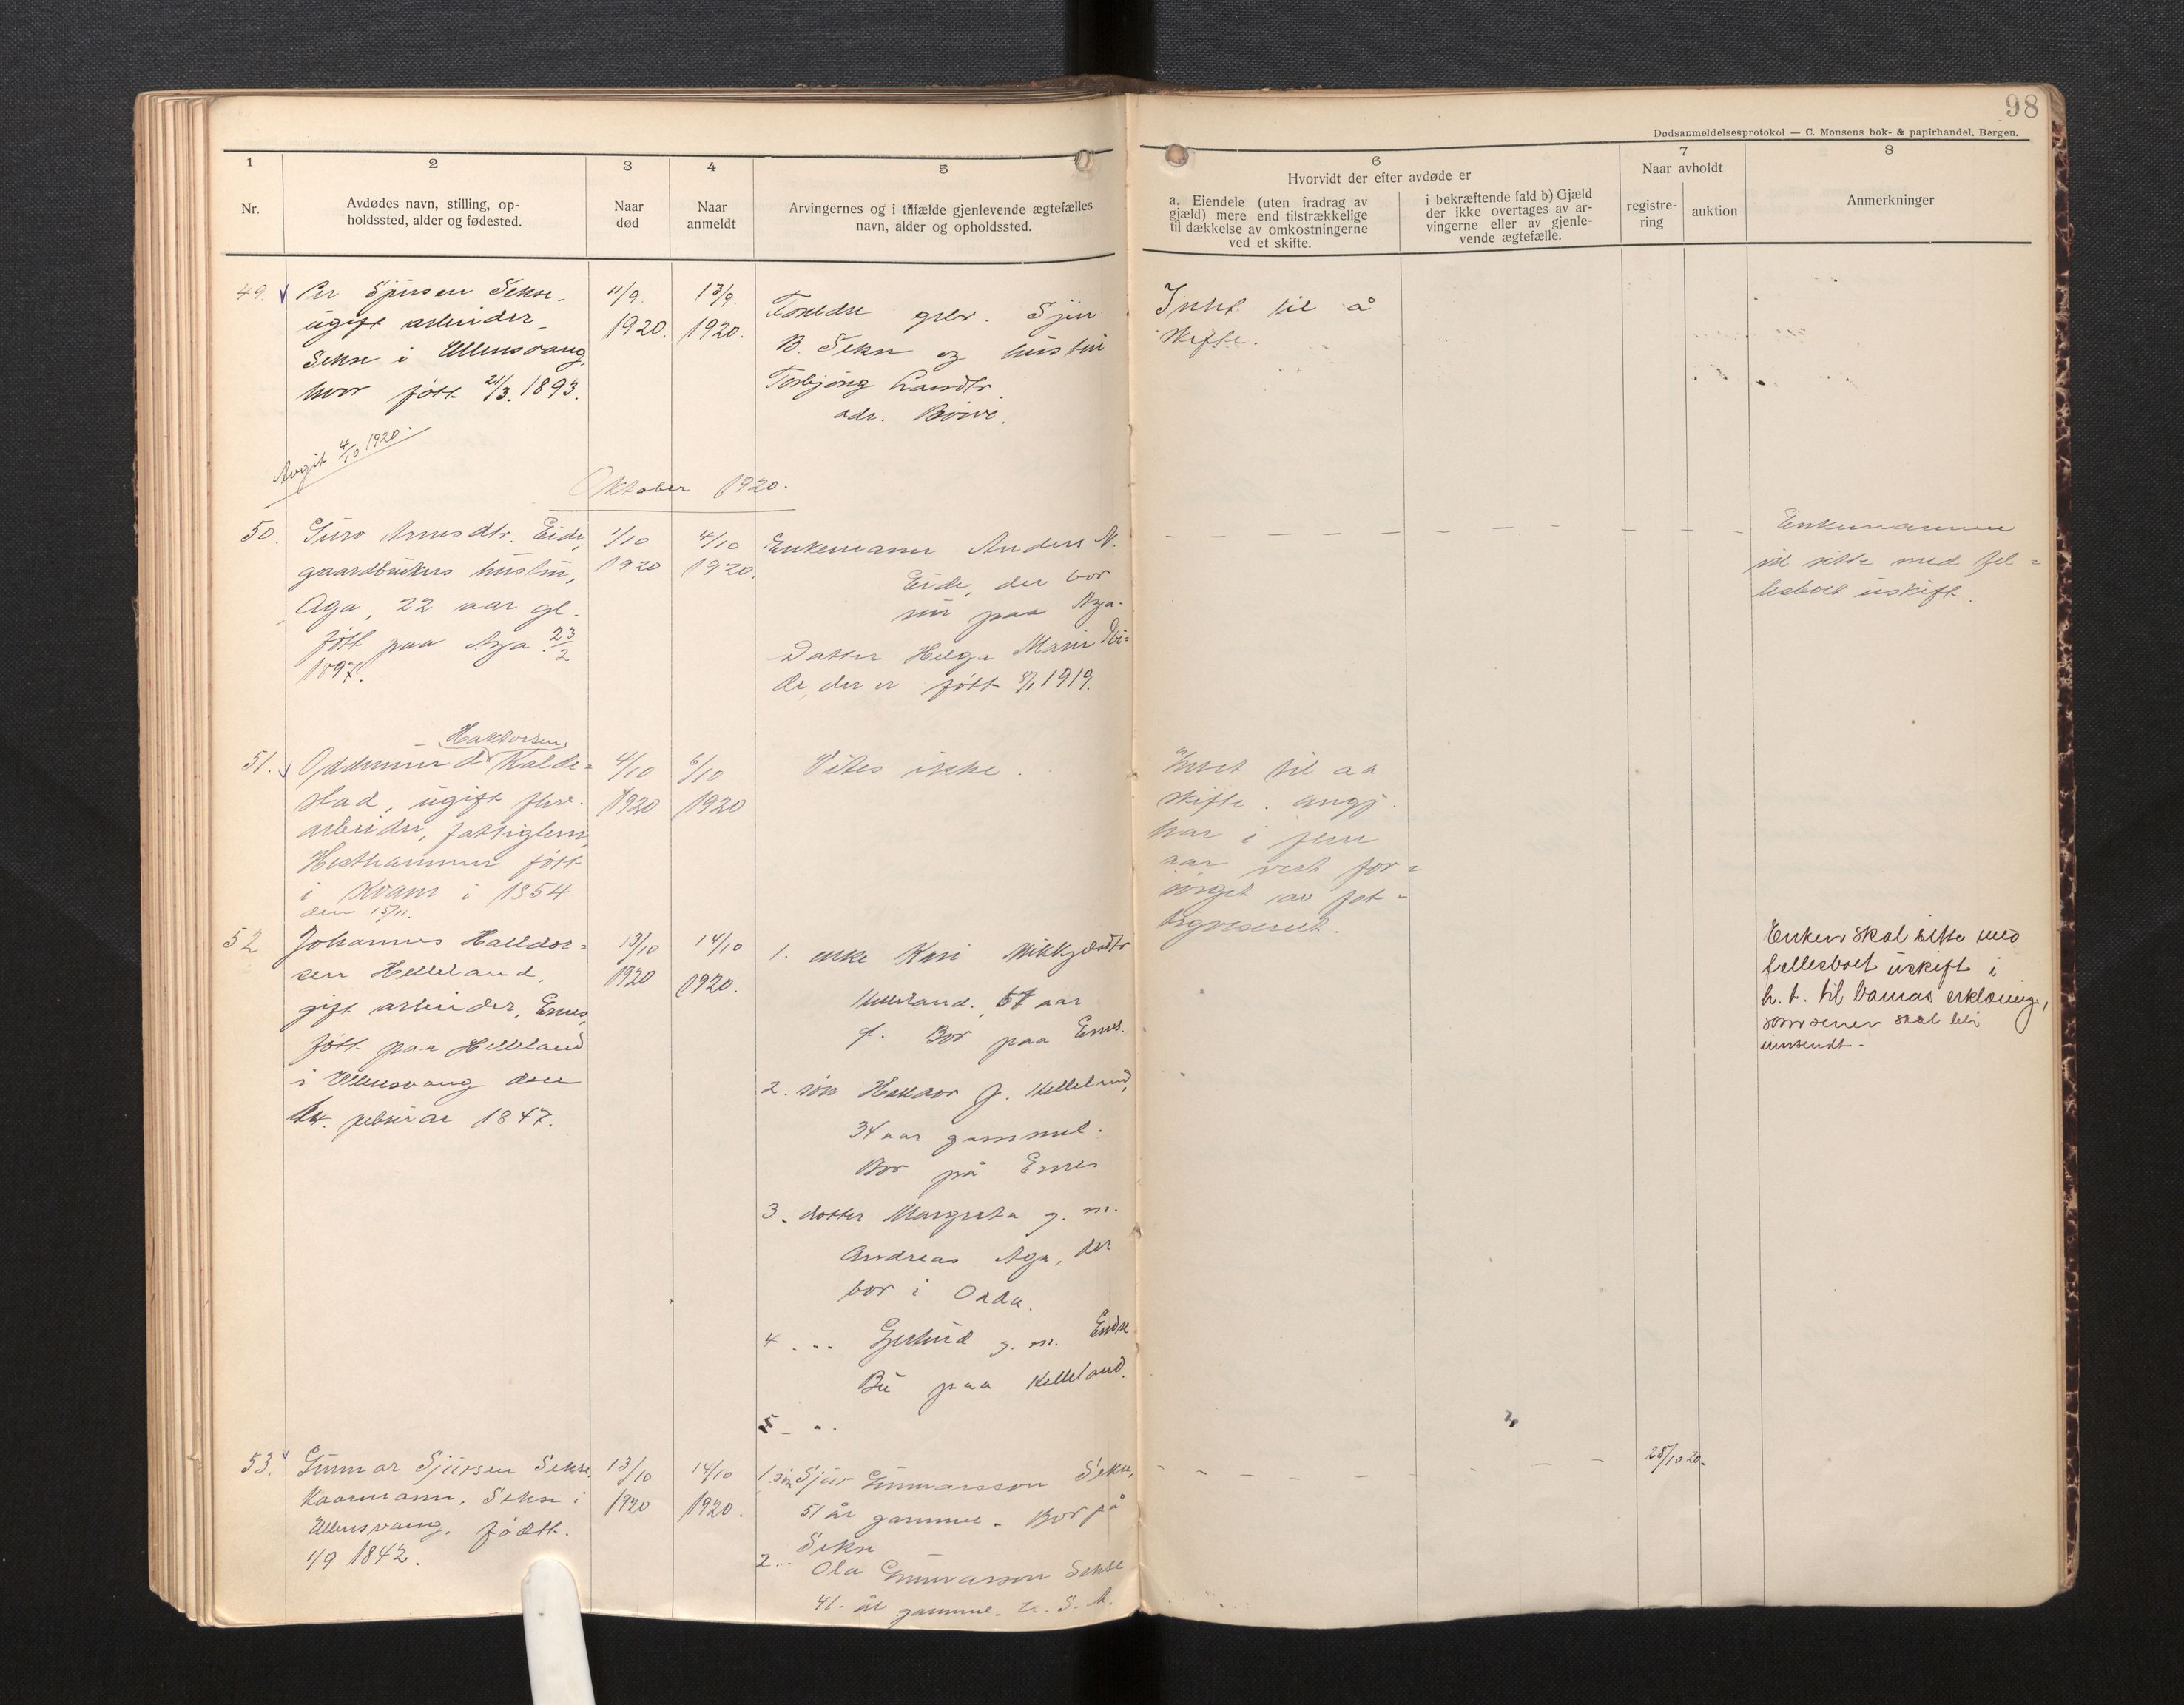 98
Dødsanmeldelsesprotokol — C. Monsens bok- & papirhandel, Bergen.
1
Nr.
2
Avdødes navn, stilling, op-
holdssted, alder og fødested.
3
Naar
død
4
Naar
anmeldt
5
Arvingernes og i tilfælde gjenlevende ægtefælles
navn, alder og opholdssted.
6
Hvorvidt der efter avdøde er
a. Eiendele (uten fradrag av
gjæld) mere end tilstrækkelige
til dækkelse av omkostningerne
ved et skifte.
i bekræftende fald b) Gjæld
der ikke overtages av ar-
vingerne eller av gjenle-
vende ægtefælle.
7
Naar avholdt
registre-
ring
auktion
8
Anmerkninger
49.
Per Sjursen Sekse,
ugift arbeider,
Sekse i Ullensvang,
hvor født 21/3. 1893.
11/9.
1920.
13/9.
1920.
Foreldre gbr. Sjur
B. Sekse og hustru
Torbjørg Larsdtr.
adr. Børve.
Intet til å
skifte.
Avgit 4/10 1920.
Oktober 1920.
50.
Guro Arnesdtr. Eide,
gaardbrukers hustru,
Aga, 22 aar gl.
født paa Aga 23/2
1897.
1/10
1920
4/10
1920.
Enkemann Anders N.
Eide, der bor
nu paa Aga.
Datter Helga Marie Ei=
de, der er født 5/1 1919.
Enkemannen
vil sitte med fel=
lesboet uskift.
51.
Haktorsen
Oddmund Kalde=
stad, ugift fhv.
arbeider, fattiglem,
Hesthammer født
i Kvam i 1854
den 15/11.
4/10
1920
6/10
1920
Vites ikke.
Intet til aa
skifte. angj.
har i flere
aar vert for=
sørget av fat=
tigvesenet.
52
Johannes Halldor=
sen Helleland,
gift arbeider, Ernes,
født paa Helleland
i Ullensvang den
februar 1847.
13/10
1920
14/10
1920.
1. enke Kari
Helleland. 67 aar
gl. Bor paa Ernes.
2. søn Halldor J. Helleland,
34 aar gammel.
Bor på Ernes
3. datter Margreta g. m.
Andreas Aga, der
bor i Odda.
4. „ Gjertrud g. m. Endre
Bu paa Helleland.
5 „
Enken skal sitte med
fellesboet uskift i
h. t. til barnas erklæring,
som senere skal bli
innsendt.
53.
Gunnar Sjursen Sekse,
Kaarmann, Sekse i
Ullensvang, født.
1/9 1842.
13/10
1920
14/10
1920.
1. søn Sjur Gunnarsson Sekse,
51 år gammel. Bor på
Sekse
2 „ Ola Gunnarsson Sekse
41 år gammel. U. S. A.
28/10 20.